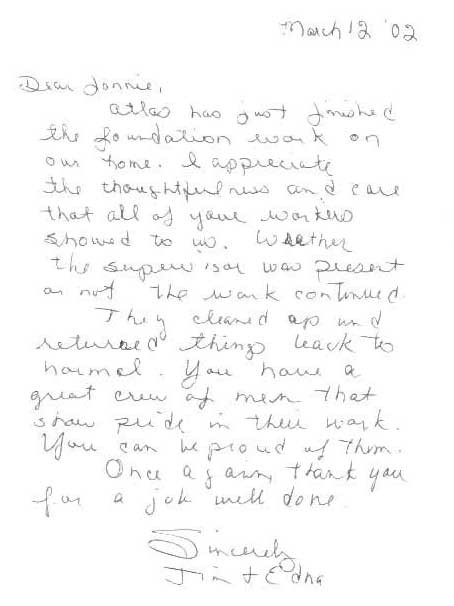 March 12 '02
Dear Lonnie,
Atlas has just finished
the foundation work on
our home. I appreciate
the thoughtfulness and care
that all of your workers
showed to us. Weather
the supervisor was present
or not the work continued.
They cleaned up and
returned things back to
normal. You have a
great crew of men that
show pride in their work.
You can be proud of them.
Once again, thank you
for a job well done.
Sincerely
Jim + Edna